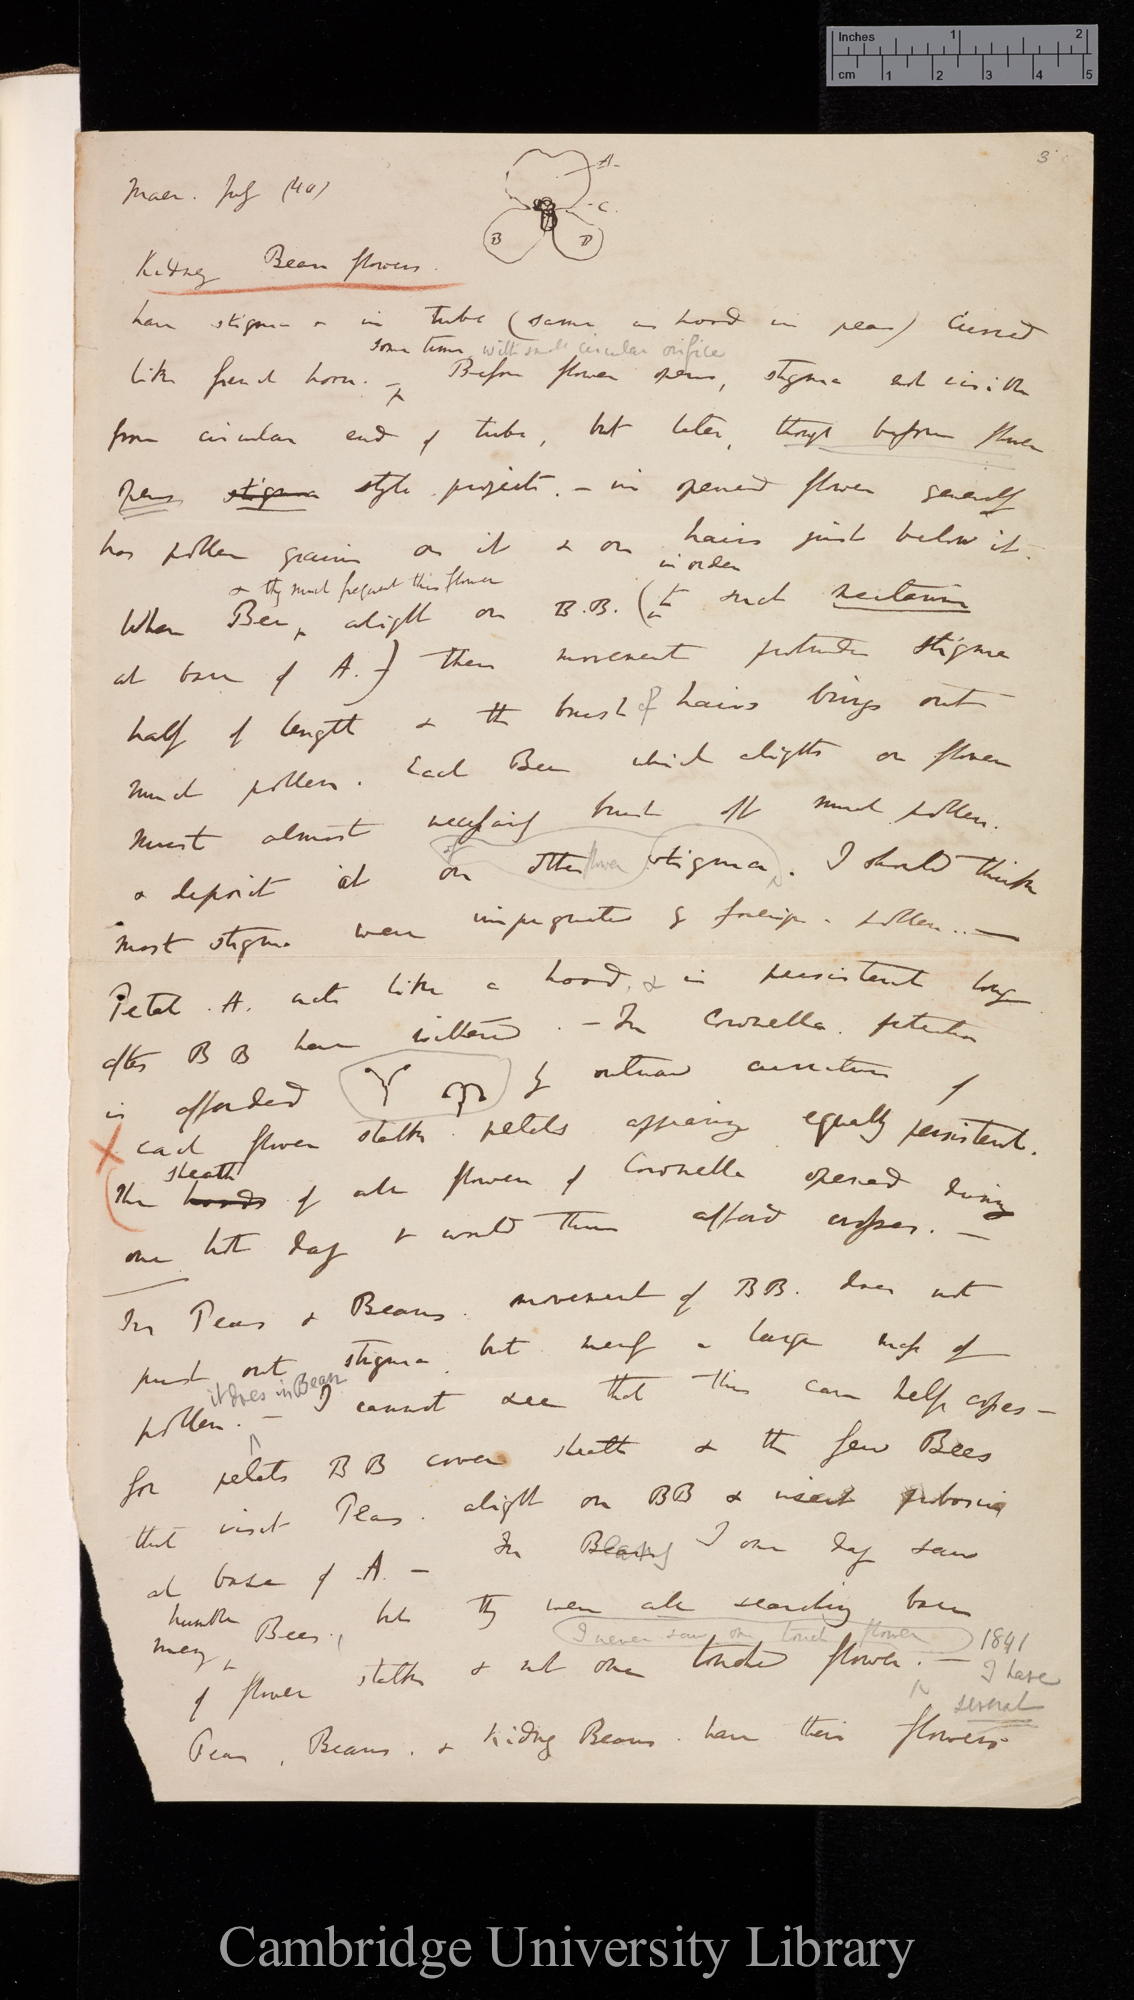 Inches 1 2
cm 1 2 3 4 5
3
Maer. July (40)
A
C.
B B
Kidney Bean flowers.
have stigma & in tube (same as hood in peas) curved
some time with small circular orifice
like french horn. — Before flower opens, stigma not visible
from circular end of tube, but later, though before flower
opens stigma style projects. — in opened flower generally
has pollen grains on it & on hairs just below it.
& they much frequent this flower
in order
When Bees, alight on B.B. (to suck nectarium
at base of A.) then movement protrudes stigma
half of length & the brush of hairs brings out
much pollen. Each Bee which alights on flower
must almost necessarily brush off much pollen.
& deposit it on other flower stigma. I should think
most stigmas were impregnated by foreign pollen.. —
Petal A. acts like a hood, & is persistent long
after B B have withered. — In Coronella. protection
is afforded by outward curvature of
each flower stalk petals appearing equally persistent.
sheath
(The hoods of all flowers of Coronella opened during
one hot day & would thus afford crosses. —
In Peas & Beans. movement of BB. does not
push out stigma, but merely a large mass of
it does in Bean
pollen. — I cannot see that this can help crosses —
for petals B B cover sheath & the few Bees
that visit Peas. alight on BB & insert proboscis
at base of A. — In Beans I one day saw
humble
many Bees, but they were all searching base
I never saw one touch flower
1841
of flower stalks & not one touched flower. —
I have
several
Peas, Beans. & Kidney Beans. have their flowers
Cambridge University Library